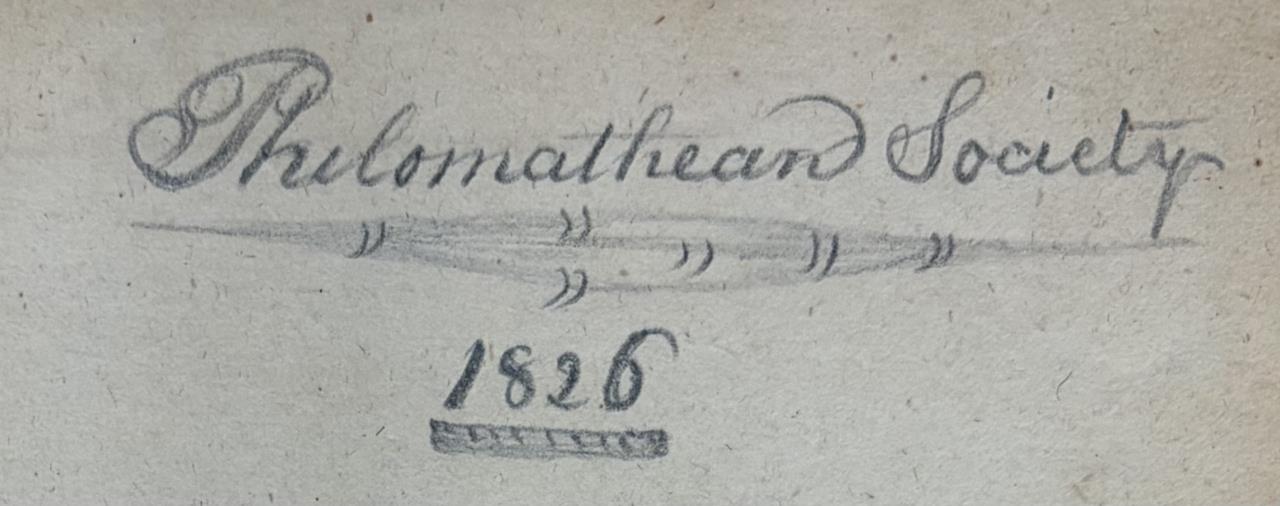 Philomathean Society
1826